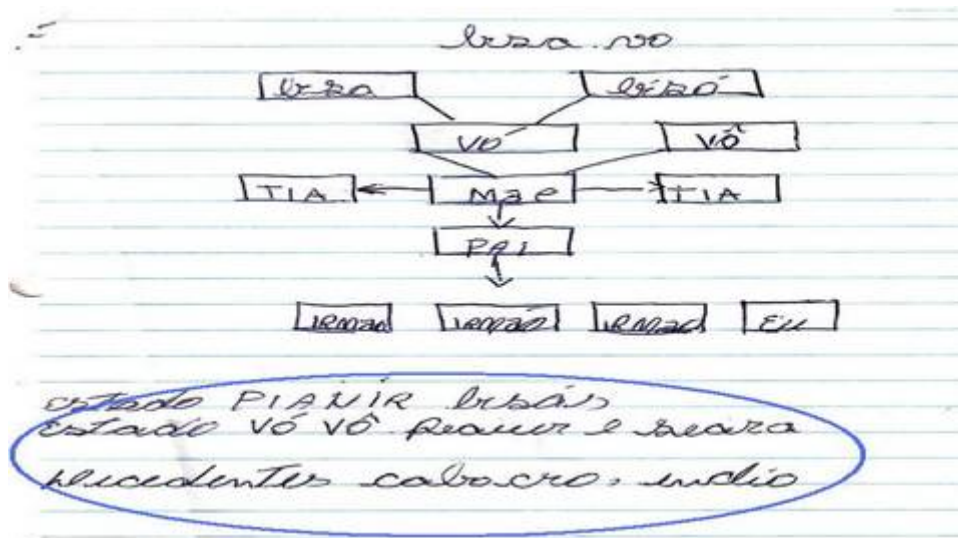 bisa.vo
bisa bisó
VO VÔ
TIA Mae TIA
PAI
IRMao IRMão IRMao EU
estado PIANIR bisás
estado VÓ VÔ peauir e seara
precedentes cabocro, indio